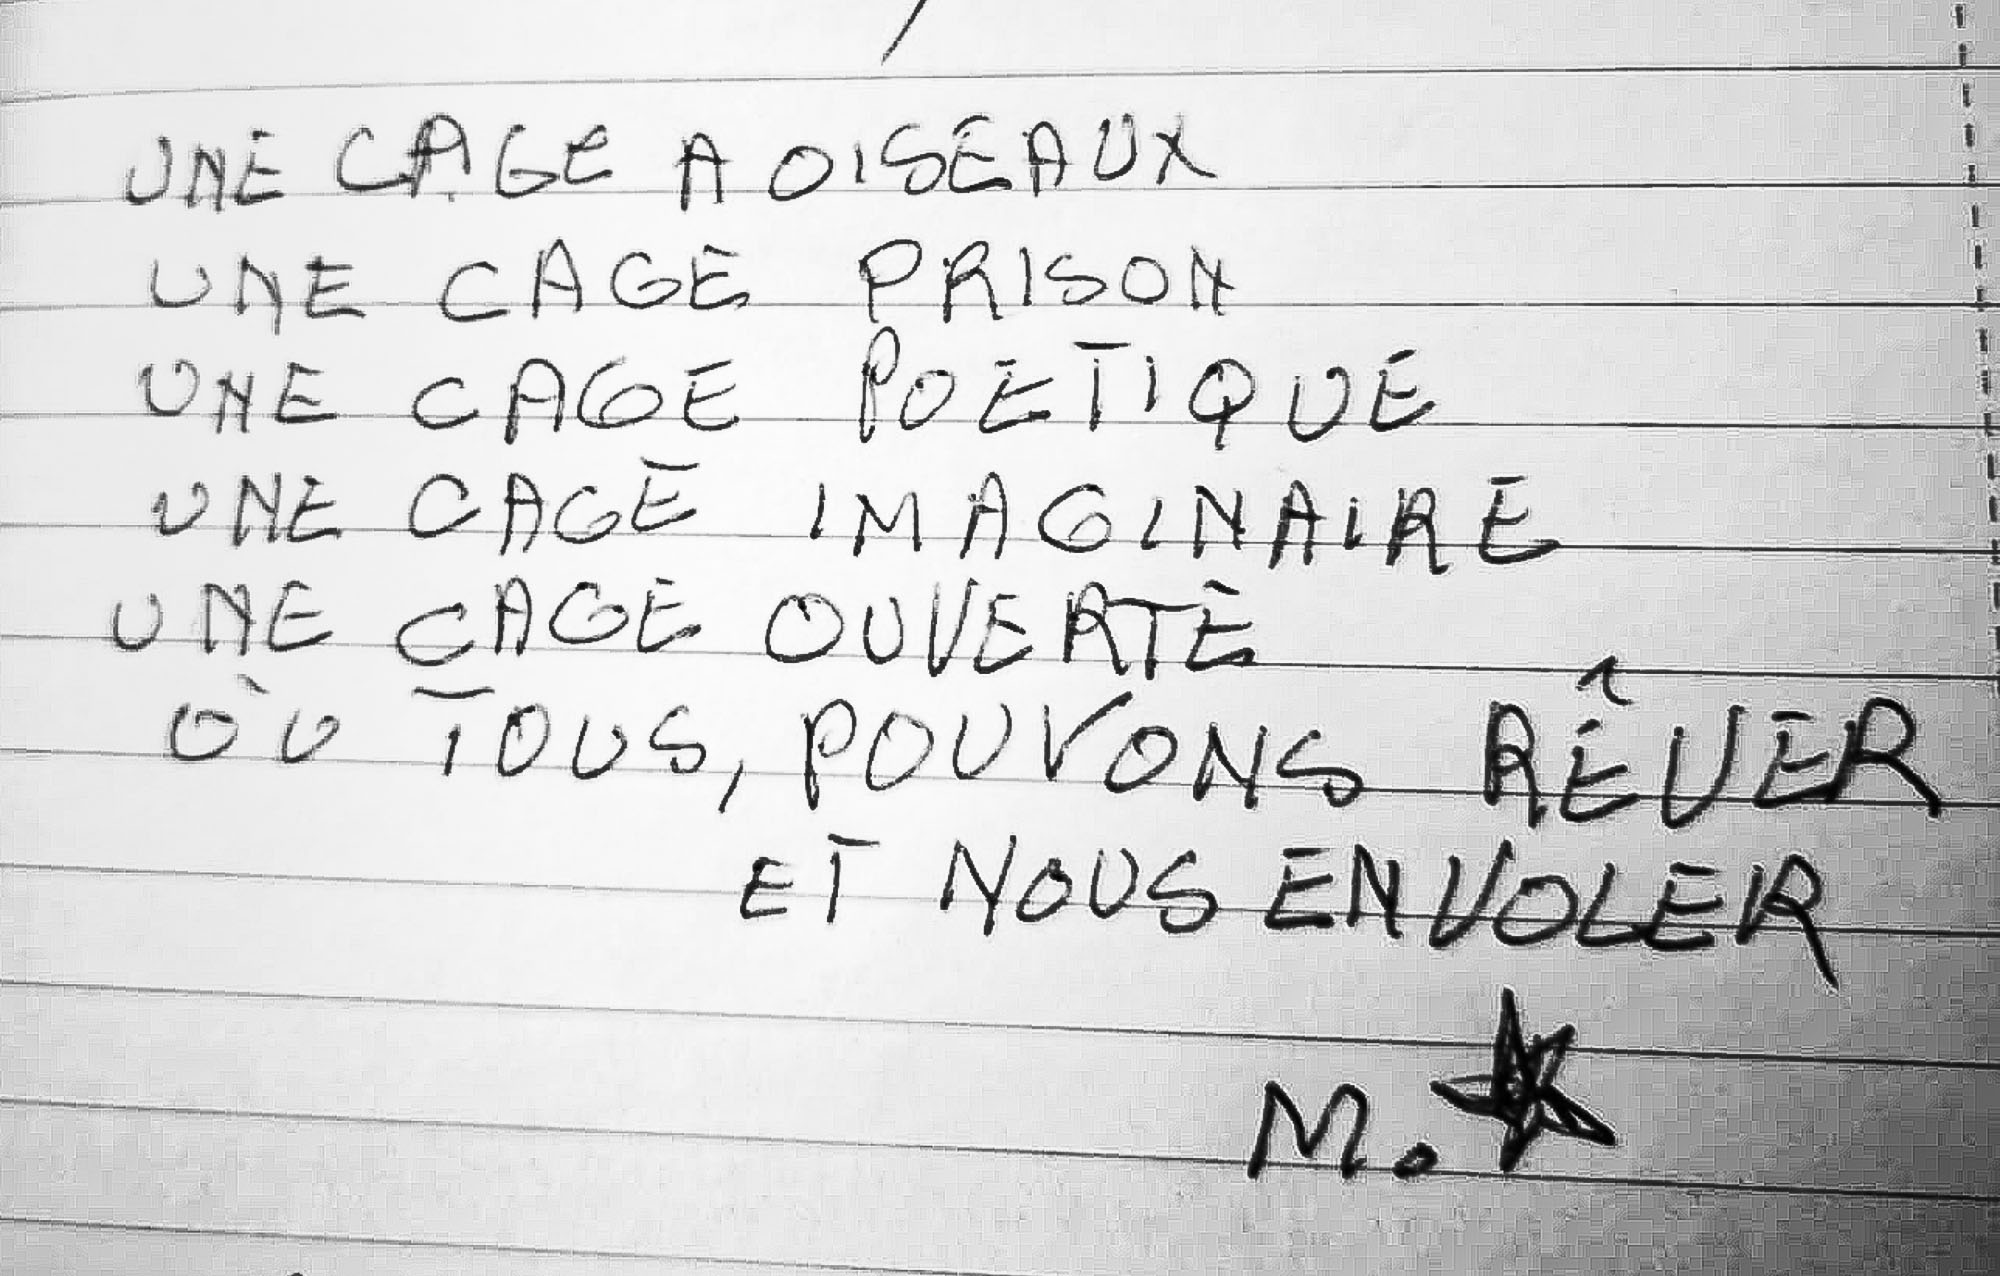 UNE CAGE A OISEAUX
UNE CAGE PRISON
UNE CAGE POETIQUE
UNE CAGE IMAGINAIRE
UNE CAGE OUVERTE
OÙ TOUS, POUVONS RÊVER
ET NOUS ENVOLER
M.